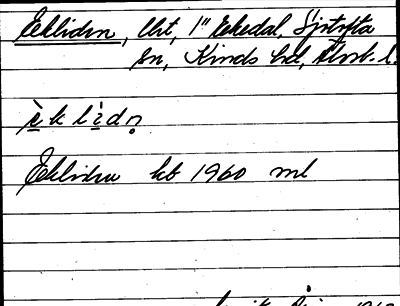 Ekliden, lht, 1" Ekedal, Sjötofta
sn, Kinds hd, Älvsb. l.
è k l ì d n̥
Ekliden kb 1960 ml